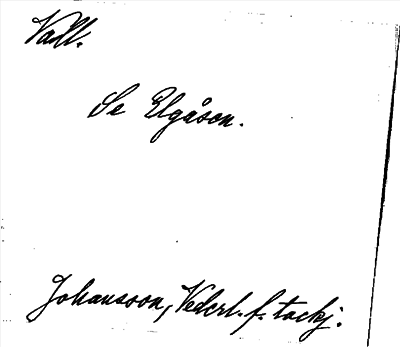 Vall.
Se Elgåson.
Johansson, Vederl. f. tackj.